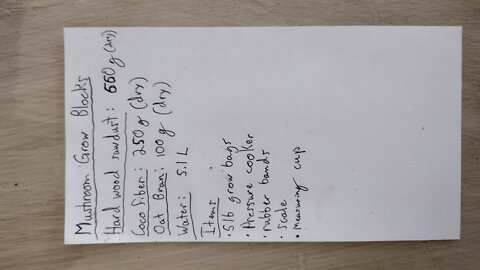 Mushroom Grow Blocks
Hard wood sawdust: 550g (dry)
Coco fiber: 250g (dry)
Oat Bran: 100g (dry)
Water: 5.1 L
Items
• 5lb grow bags
• Pressure cooker
• rubber bands
• scale
• measuring cup